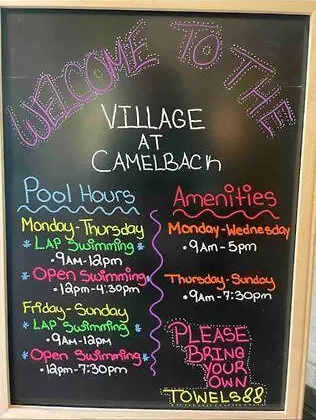 WELCOME TO THE
VILLAGE
AT
CAMELBACH
Pool Hours
Monday-Thursday
* LAP Swimming *
• 9AM-12pm
* Open Swimming *
• 12pm-4:30pm
Friday-Sunday
* LAP Swimming *
• 9AM-12pm
* Open Swimming *
• 12pm-7:30pm
Amenities
Monday-Wednesday
• 9Am-5pm
Thursday-Sunday
• 9Am-7:30pm
PLEASE
BRING
YOUR
OWN
TOWELS!!